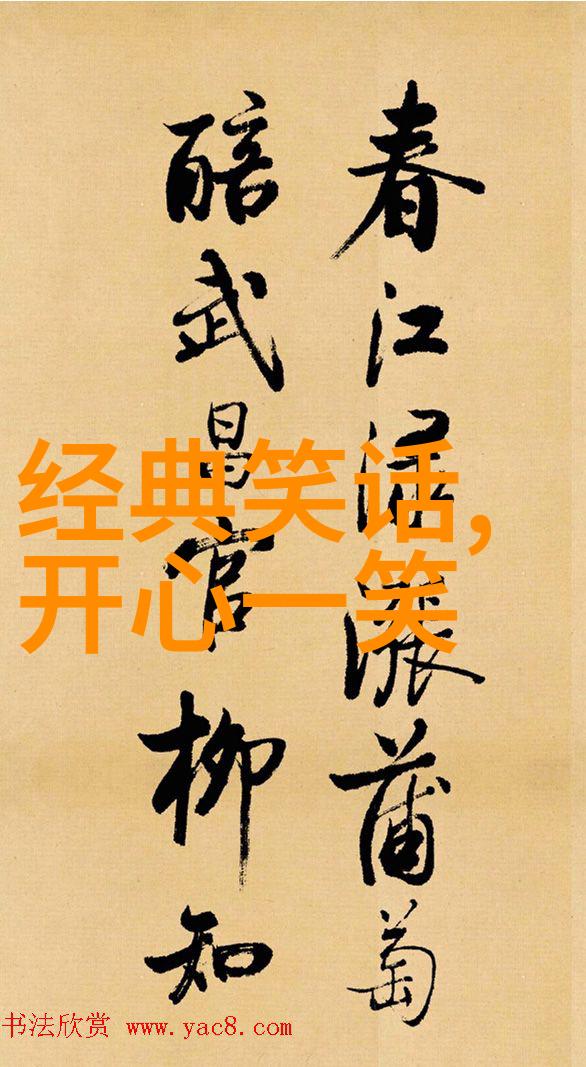 春江渌涨蒲萄
醅武昌官柳知
经典笑话,
开心一笑
书法欣赏 www.yac8.com